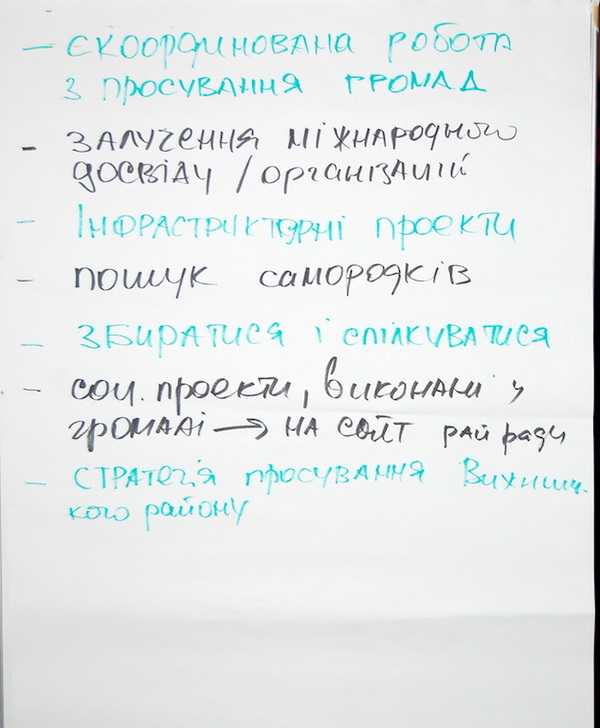 — скоординована робота
з просування громад
- залучення міжнародного
досвіду / організацій
- Інфраструктурні проекти
- пошук самородків
- збиратися і спілкуватися
- соц. проекти, виконані у
громаді → на сайт рай ради
- стратегія просування Вижниць-
кого району